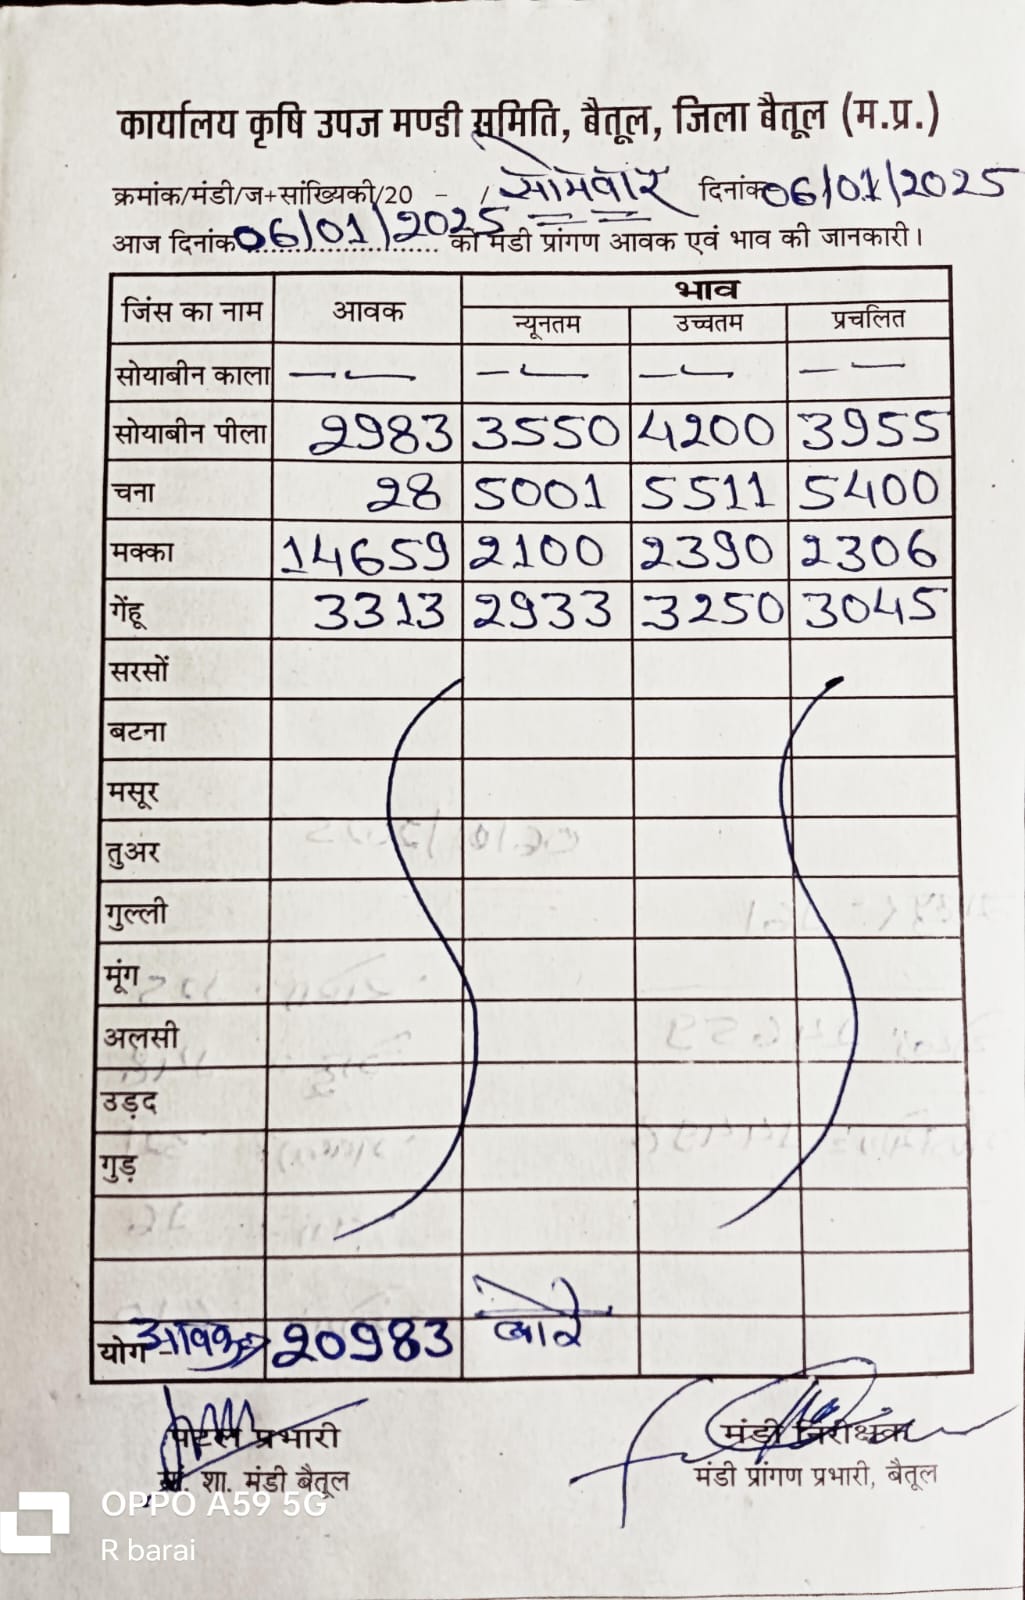 कार्यालय कृषि उपज मण्डी समिति, बैतूल, जिला बैतूल (म.प्र.)
क्रमांक/मंडी/ज+सांख्यिकी/20 - / सोमवार दिनांक 06/01/2025
आज दिनांक 06/01/2025 को मंडी प्रांगण आवक एवं भाव की जानकारी।
जिंस का नाम आवक भाव
न्यूनतम उच्चतम प्रचलित
सोयाबीन काला — — — — — — — —
सोयाबीन पीला 2983 3550 4200 3955
चना 28 5001 5511 5400
मक्का 14659 2100 2390 2306
गेंहू 3313 2933 3250 3045
सरसों
बटना
मसूर
तुअर
गुल्ली
मूंग
अलसी
उड़द
गुड़
योग आवक → 20983 बोरे
पोर्टल प्रभारी मंडी निरीक्षक
शा. मंडी बैतूल मंडी प्रांगण प्रभारी, बैतूल
OPPO A59 5G
R barai